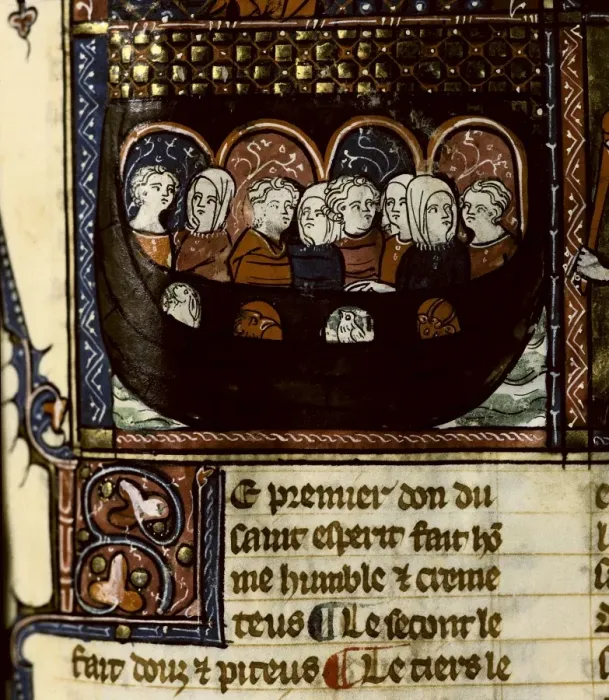 LE premier don du
saint esperit fait hõ
me humble ⁊ creme
teus ¶ Le secont le
fait douz ⁊ piteus ¶ Le tiers le